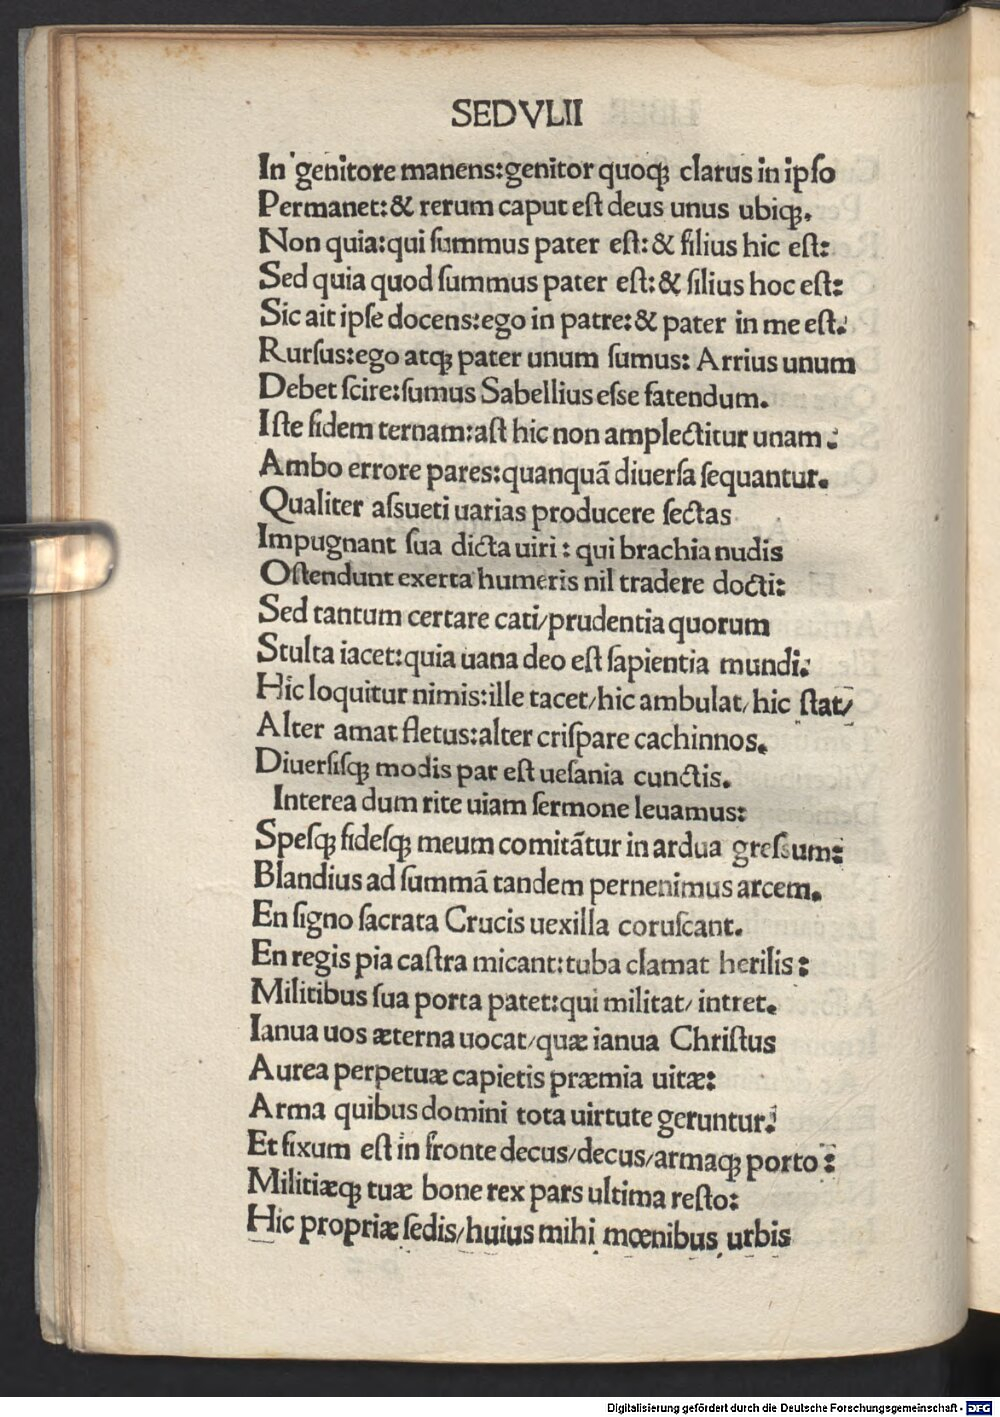 SEDVLII
In genitore manens:genitor quoqꝫ clarus in ipſo
Permanet:& rerum caput eſt deus unus ubiqꝫ.
Non quia:qui ſummus pater eſt:& filius hic eſt:
Sed quia quod ſummus pater eſt:& filius hoc eſt:
Sic ait ipſe docens:ego in patre:& pater in me eſt.
Rurſus:ego atqꝫ pater unum ſumus: Arrius unum
Debet ſcire:ſumus Sabellius eſſe fatendum.
Iſte fidem ternam:aſt hic non amplectitur unam:
Ambo errore pares:quanquã diuerſa ſequantur.
Qualiter aſſueti uarias producere ſectas
Impugnant ſua dicta uiri: qui brachia nudis
Oſtendunt exerta humeris nil tradere docti:
Sed tantum certare cati/prudentia quorum
Stulta iacet:quia uana deo eſt ſapientia mundi.
Hic loquitur nimis:ille tacet/hic ambulat/hic ſtat/
Alter amat fletus:alter criſpare cachinnos.
Diuerſiſqꝫ modis par eſt ueſania cunctis.
Interea dum rite uiam ſermone leuamus:
Speſqꝫ fideſqꝫ meum comitãtur in ardua greſſum:
Blandius ad ſummã tandem pernenimus arcem.
En ſigno ſacrata Crucis uexilla coruſcant.
En regis pia caſtra micant:tuba clamat herilis:
Militibus ſua porta patet:qui militat/ intret.
Ianua uos æterna uocat/quæ ianua Chriſtus
Aurea perpetuæ capietis præmia uitæ:
Arma quibus domini tota uirtute geruntur.
Et fixum eſt in fronte decus/decus/armaqꝫ porto:
Militiæqꝫ tuæ bone rex pars ultima reſto:
Hic propriæ ſedis/huius mihi mœnibus urbis
Digitalisierung gefördert durch die Deutsche Forschungsgemeinschaft - DFG